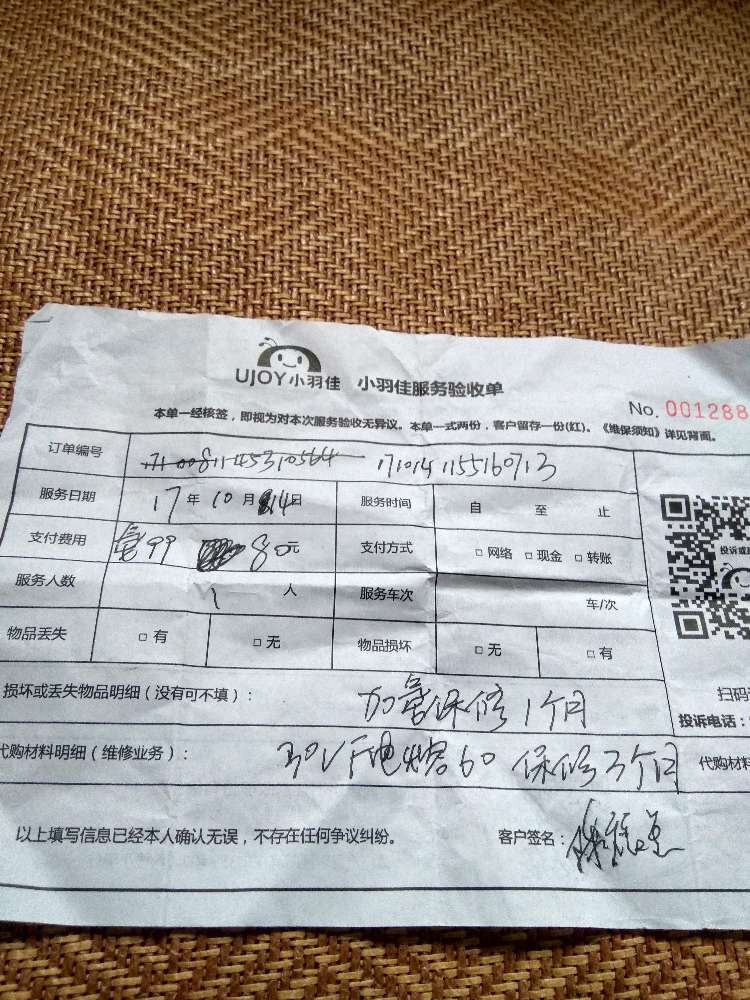 UJOY小羽佳 小羽佳服务验收单
No. 001288
本单一经核签，即视为对本次服务验收无异议。本单一式两份，客户留存一份(红)。《维保须知》详见背面。
订单编号 1710141155160713
服务日期 17年10月14日 服务时间 自 至 止
支付费用 氟99 80元 支付方式 □网络 □现金 □转账
投诉或
服务人数 1人 服务车次 车/次
物品丢失 □有 □无 物品损坏 □无 □有
扫码
损坏或丢失物品明细（没有可不填）： 加氟保修1个月
投诉电话：
代购材料明细（维修业务）： 30VF电容60 保修3个月 代购材料
以上填写信息已经本人确认无误，不存在任何争议纠纷。 客户签名：